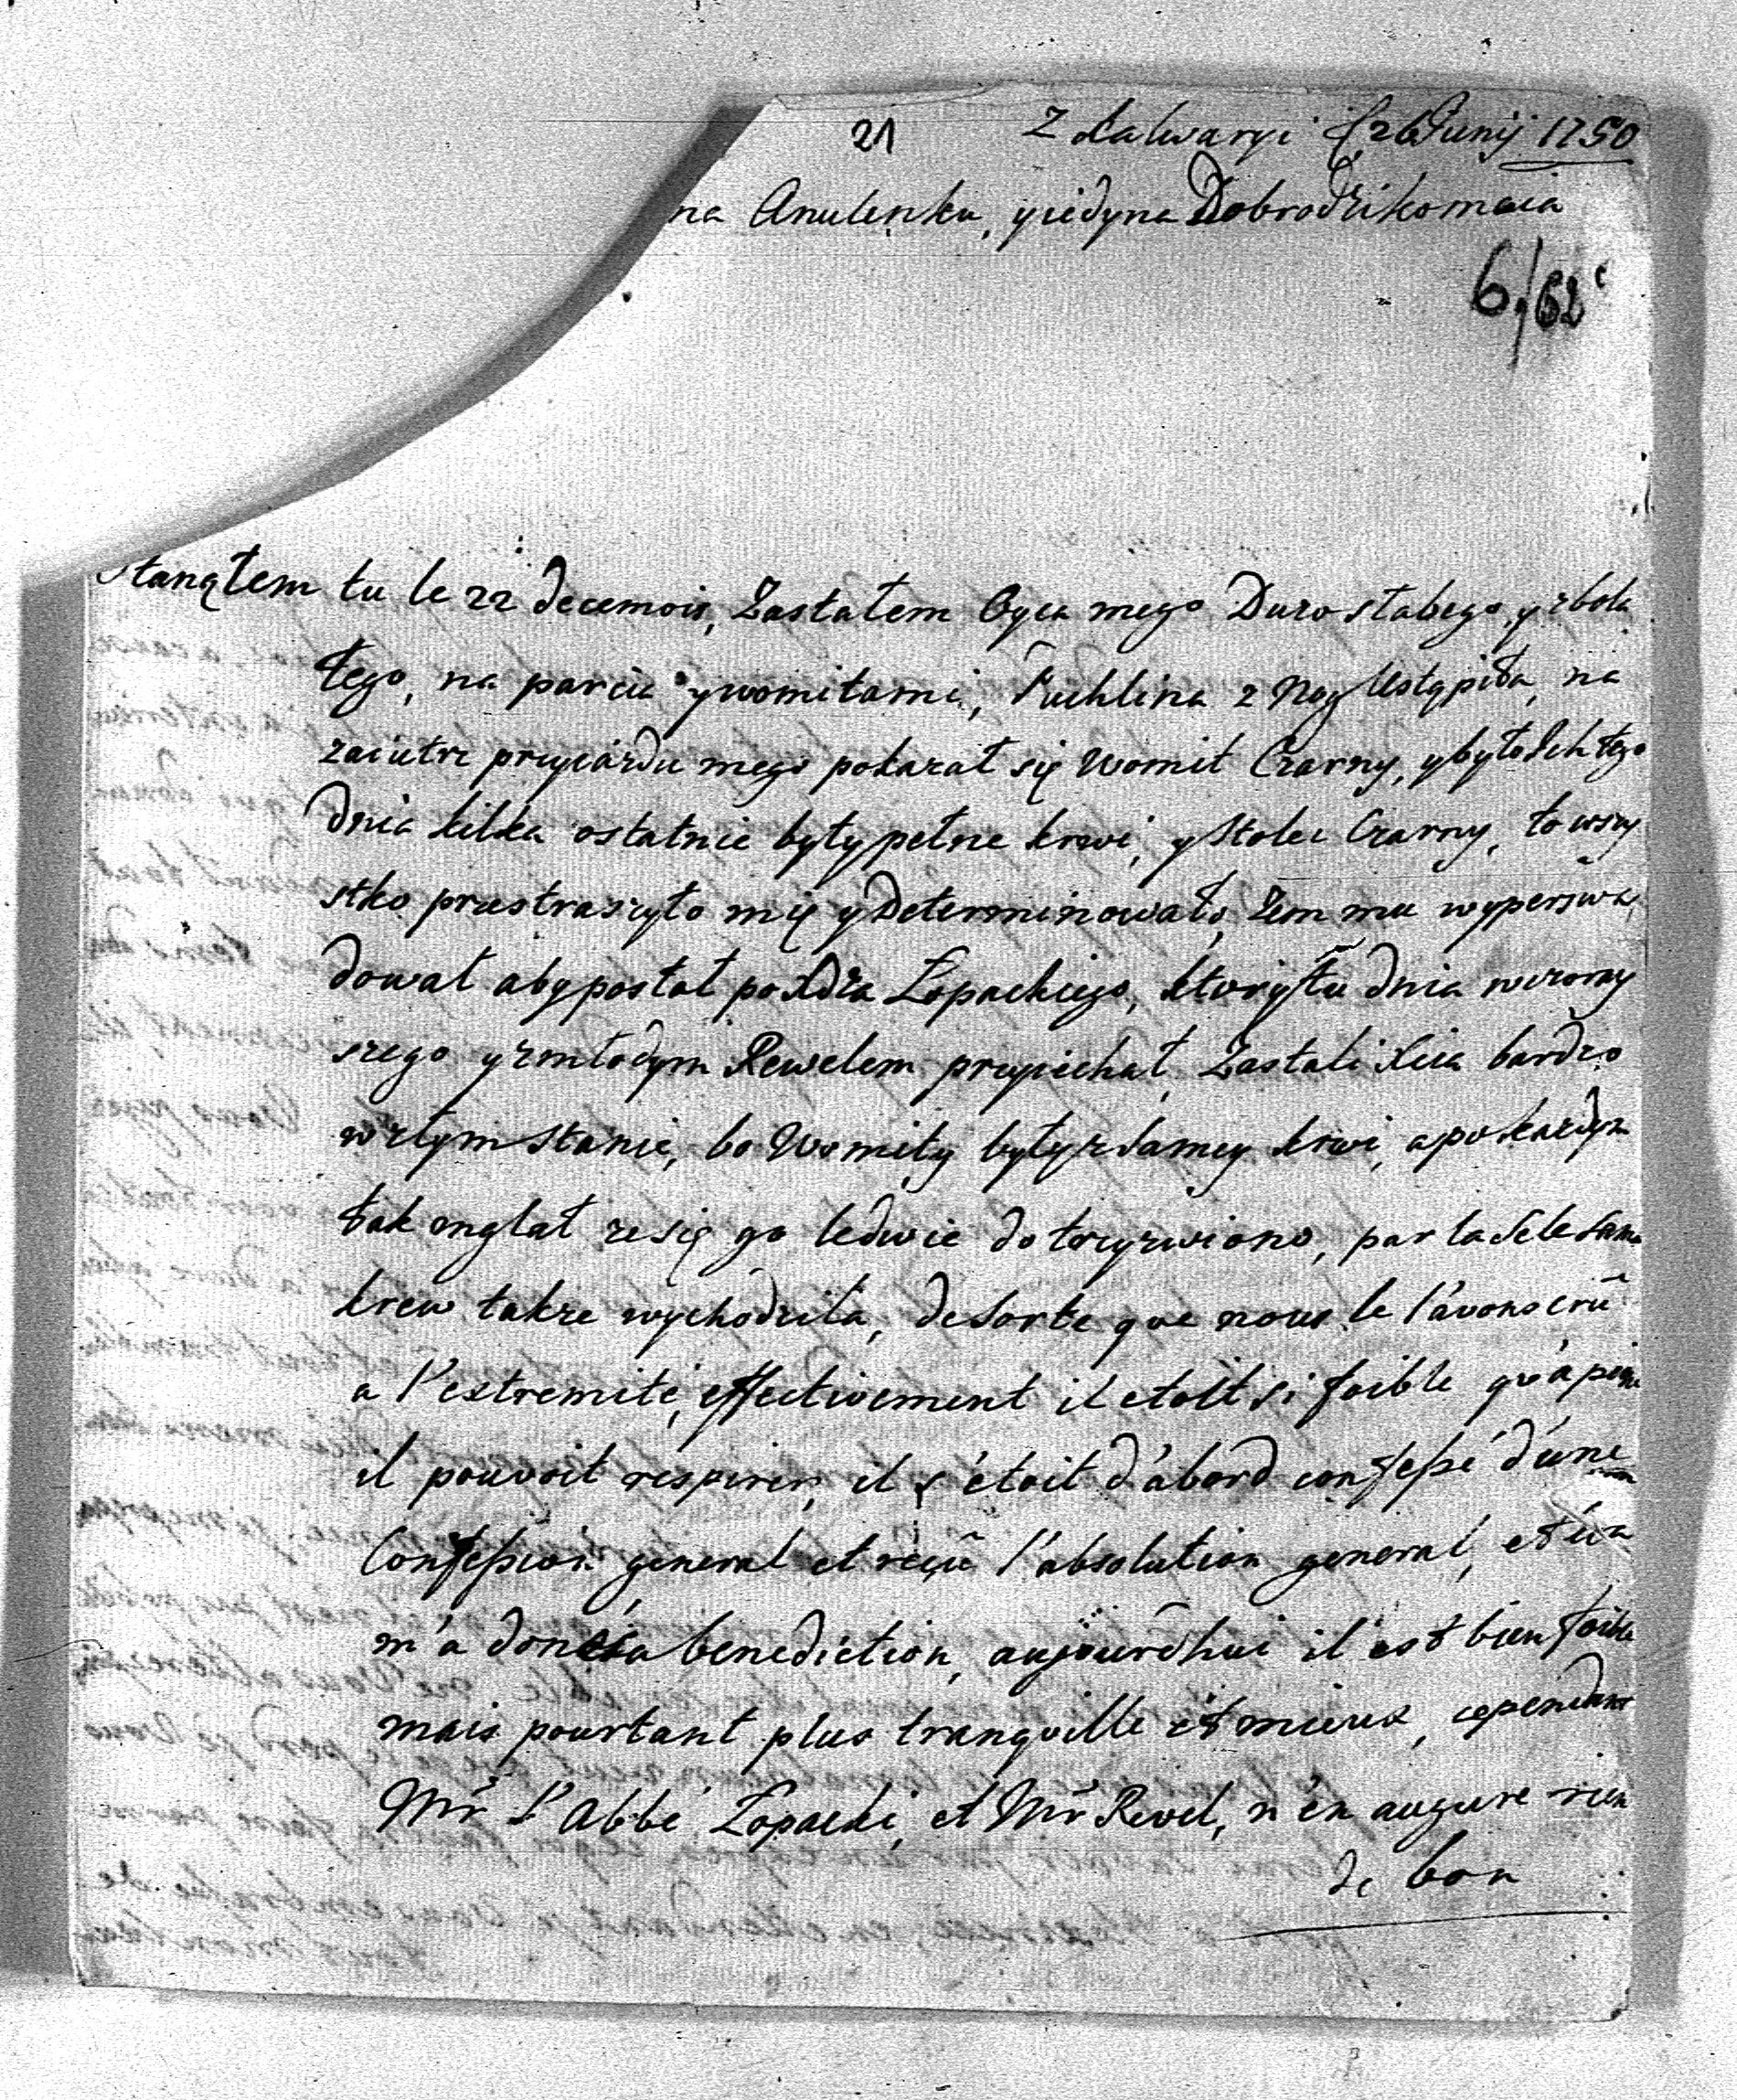 21 Z Kalwaryi d. 26 Junij 1750
na Anulenku, y iedyna Dobrodziko moia
6/62
Stanąłem tu le 22 de ce mois, Zastałem Oyca mego Duzo słabego, y zbola
łego, na parcia y womitami, Puchlina z Nog Ustąpiła, na
zaiutrz przyiazdu mego pokazał się Womit Czarny, y było Ich tego
dnia kilka ostatnie były pełne krwi, y Stolec Czarny, to wszy
stko przestraszyło mię y Determinowało, Zem mu wyperswa
dował aby posłał po Xdza Łopackiego, ktory tu dnia wczoray
szego y z młodym Rewelem przyiechał, Zastali Xcia bardzo
w złym Stanie, bo Womity były z samey krwi, a po kazdym
tak mglał ze się go ledwie dotrzyzwiono, par la Sele sama
krew takze wychodziła, de Sorte que nous le l'avons crû
a l'extremité, effectivement il etoit si foible qu'a peine
il pouvoit respirer, il s'étoit d'abord confessé d'une
Confession general et reçû l'absolution general, et
m'a donésa benediction, aujourd'hui il est bien foible
mais pourtant plus tranquille et mieux, cependant
Mr L'Abbé Łopacki, et Mr Revel, n'en augure rien
de bon